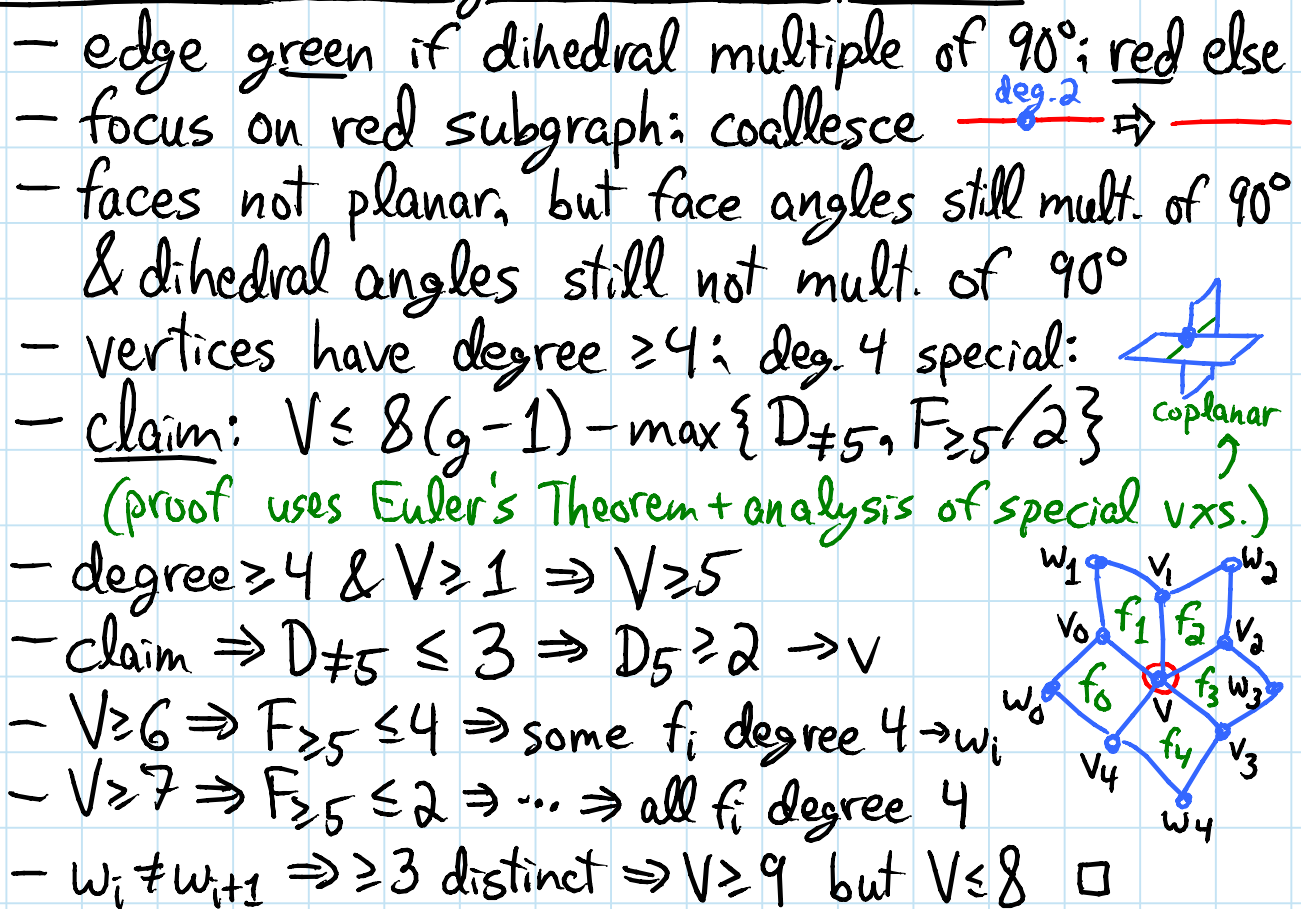 — edge green if dihedral multiple of 90°; red else
— focus on red subgraph; coallesce deg. 2 ⇒
— faces not planar, but face angles still mult. of 90°
& dihedral angles still not mult. of 90°
— vertices have degree ≥4; deg. 4 special:
coplanar
— claim: V ≤ 8(g-1) - max{D≠5, F≥5/2}
(proof uses Euler's Theorem + analysis of special vxs.)
— degree ≥ 4 & V ≥ 1 ⇒ V ≥ 5
— claim ⇒ D≠5 ≤ 3 ⇒ D5 ≥ 2 → v
— V ≥ 6 ⇒ F≥5 ≤ 4 ⇒ some fi degree 4 → wi
— V ≥ 7 ⇒ F≥5 ≤ 2 ⇒ ... ⇒ all fi degree 4
— wi ≠ wi+1 ⇒ ≥ 3 distinct ⇒ V ≥ 9 but V ≤ 8 □
w1 v1 w2
v0 f1 f2 v2
w0 f0 v f3 w3
v4 f4 v3
w4